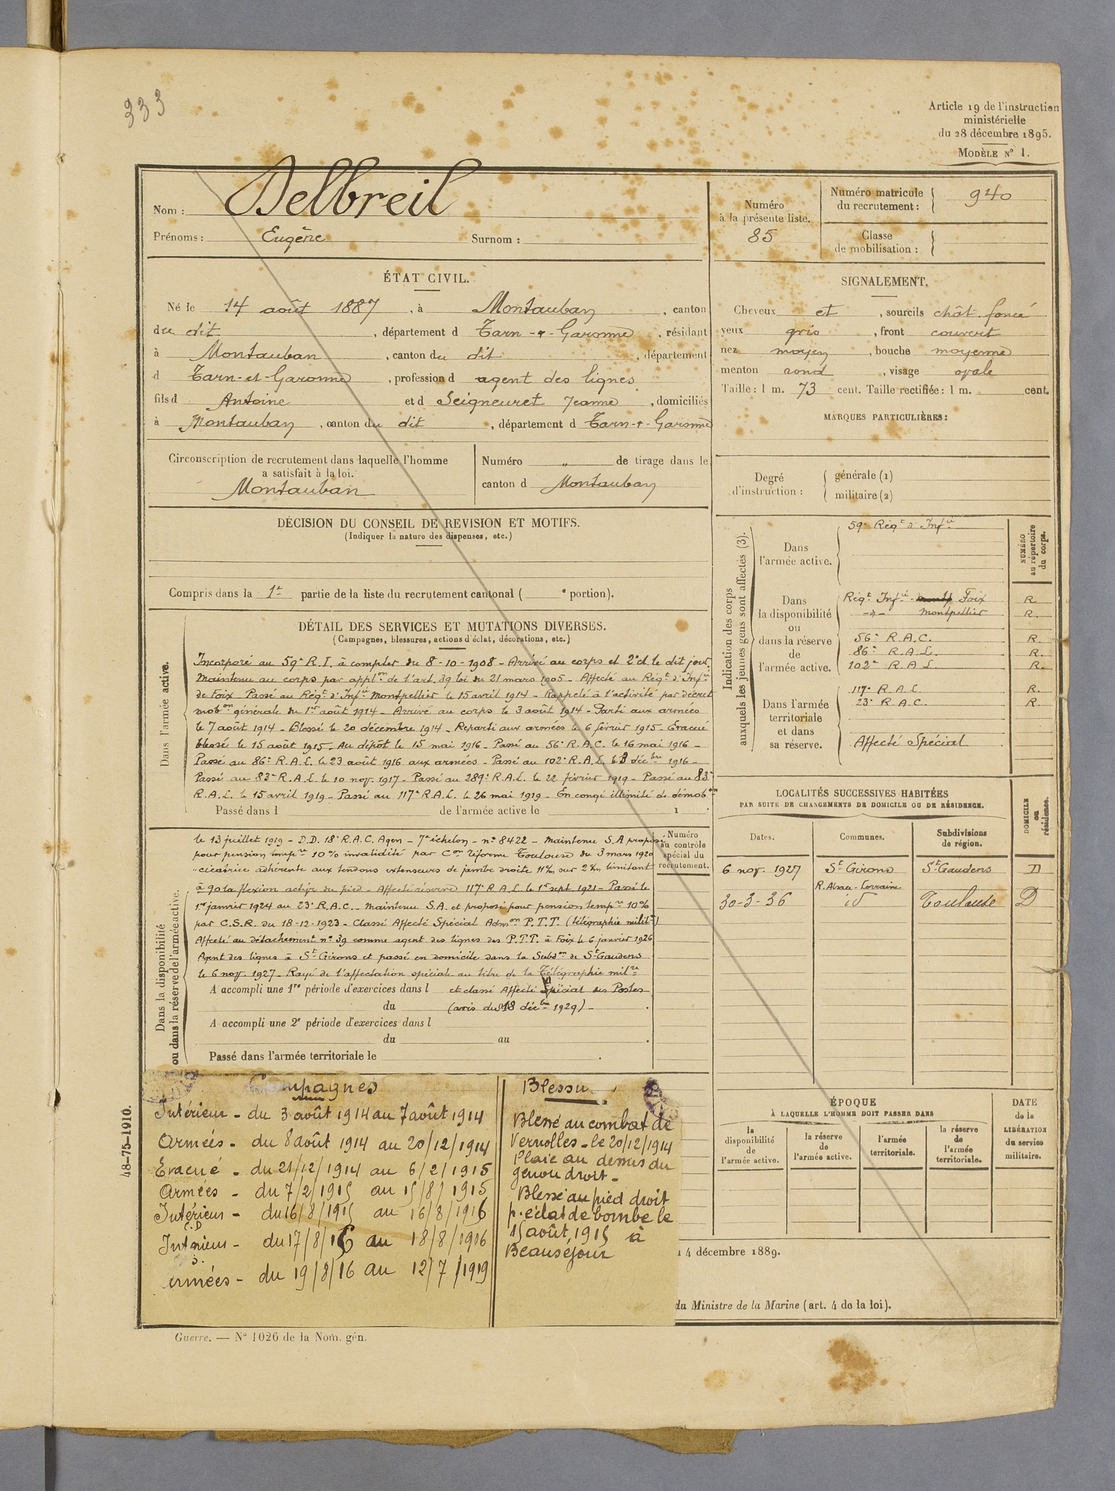 333
Article 19 de l'instruction
ministérielle
du 28 décembre 1895.
Modèle N° 1.
Nom : Delbreil
Prénoms : Eugène Surnom :
Numéro
à la présente liste.
85
Numéro matricule
du recrutement : 940
Classe
de mobilisation :
ÉTAT CIVIL.
Né le 14 août 1887, à Montauban, canton
du dit, département d Tarn-&-Garonne, résidant
à Montauban, canton du dit, département
d Tarn-et-Garonne, profession d agent des lignes
fils d Antoine et d Seigneuret Jeanne, domiciliés
à Montauban, canton du dit, département d Tarn-&-Garonne
SIGNALEMENT.
Cheveux et, sourcils chât. foncé
yeux gris, front couvert
nez moyen, bouche moyenne
menton rond, visage ovale
Taille : 1 m. 73 cent. Taille rectifiée : 1 m. cent.
MARQUES PARTICULIÈRES :
Circonscription de recrutement dans laquelle l'homme
a satisfait à la loi.
Montauban
Numéro „ de tirage dans le
canton d Montauban
Degré
d'instruction :
générale (1)
militaire (2)
DÉCISION DU CONSEIL DE REVISION ET MOTIFS.
(Indiquer la nature des dispenses, etc.)
Compris dans la 1re partie de la liste du recrutement cantonal ( e portion).
Indication des corps
auxquels les jeunes gens sont affectés (3).
NUMÉRO
au répertoire
du corps.
Dans
l'armée active.
59e Régt d'Infie
Dans
la disponibilité
ou
dans la réserve
de
l'armée active.
Régt Infie Foix R.
-d- Montpellier R.
56e R.A.C. R.
86e R.A.L. R.
102e R.A.L. R.
Dans l'armée
territoriale
et dans
sa réserve.
117e R.A.L. R.
23e R.A.C. R.
Affecté Spécial
DÉTAIL DES SERVICES ET MUTATIONS DIVERSES.
(Campagnes, blessures, actions d'éclat, décorations, etc.)
Dans l'armée active.
Incorporé au 59e R.I. à compter du 8-10-1908 - Arrivé au corps et 2e cl. le dit jour.
Maintenu au corps par applon de l'art. 39 loi du 21 mars 1905 - Affecté au Régt d'Infie
de Foix - Passé au Régt d'Infie Montpellier le 15 avril 1914 - Rappelé à l'activité par décret
mobon générale du 1er août 1914 - Arrivé au corps le 3 août 1914 - Parti aux armées
le 7 août 1914 - Blessé le 20 décembre 1914 - Reparti aux armées le 6 février 1915 - Evacué
blessé le 15 août 1915 - Au dépôt le 15 mai 1916 - Passé au 56e R.A.C. le 16 mai 1916 -
Passé au 86e R.A.L. le 23 août 1916 aux armées - Passé au 102e R.A.L. le 3 décbre 1916 -
Passé au 82e R.A.L. le 10 nov. 1917 - Passé au 289e R.A.L. le 22 février 1919 - Passé au 83e
R.A.L. le 15 avril 1919 - Passé au 117e R.A.L. le 26 mai 1919 - En congé illimité de démobon
Passé dans l de l'armée active le 1
Dans la disponibilité
ou dans la réserve de l'armée active.
Numéro
au contrôle
spécial du
recrutement.
le 13 juillet 1919 - D.D. 18e R.A.C. Agen - 7e échelon - n° 8422 - Maintenu S.A. proposé
pour pension tempre 10% invalidité par Con réforme Toulouse du 3 mars 1920
"cicatrice adhérente aux tendons extenseurs de jambe droite 11% sur 2% limitant
à 90 la flexion active du pied - Affecté réserve 117 R.A.L. le 1er sept 1921 - Passé le
1er janvier 1924 au 23e R.A.C. - Maintenu S.A. et proposé pour pension tempre 10%
par C.S.R. du 18-12-1923 - Classé Affecté Spécial Admon P.T.T. (télégraphie milit.)
Affecté au détachement n° 39 comme agent des lignes des P.T.T. à Foix le 6 janvier 1926
Agent des lignes à St Girons et passé en domicile dans la Subdon de St Gaudens
le 6 nov. 1927 - Rayé de l'affectation spécial au titre de la Télégraphie milre
A accompli une 1re période d'exercices dans l et classé Affecté Spécial des Postes
du (avis du 18 décbre 1929) -
A accompli une 2e période d'exercices dans l
du au
Passé dans l'armée territoriale le
LOCALITÉS SUCCESSIVES HABITÉES
PAR SUITE DE CHANGEMENTS DE DOMICILE OU DE RÉSIDENCE.
DOMICILE
ou
résidence.
Dates. Communes. Subdivisions
de région.
6 nov. 1927 St Girons St Gaudens D
R. Alsace-Lorraine
30-3-36 id Toulouse D
ÉPOQUE
À LAQUELLE L'HOMME DOIT PASSER DANS
la
disponibilité
de
l'armée active.
la réserve
de
l'armée active.
l'armée
territoriale.
la réserve
de
l'armée
territoriale.
DATE
de la
LIBÉRATION
du service
militaire.
Campagnes
Intérieur - du 3 août 1914 au 7 août 1914
Armées - du 8 août 1914 au 20/12/1914
Evacué - du 21/12/1914 au 6/2/1915
Armées - du 7/2/1915 au 15/8/1915
Intérieur - du 16/8/1915 au 16/8/1916
C.D
Intérieur - du 17/8/16 au 18/8/1916
S.
Armées - du 19/8/16 au 12/7/1919
Blessu
Blessé au combat de
Vernolles - le 20/12/1914
Plaie au dessus du
genou droit -
Blessé au pied droit
p. éclat de bombe le
15 août 1915 à
Beauséjour
4 décembre 1889.
du Ministre de la Marine (art. 4 de la loi).
48-75-1910.
Guerre. — N° 1026 de la Nom. gén.